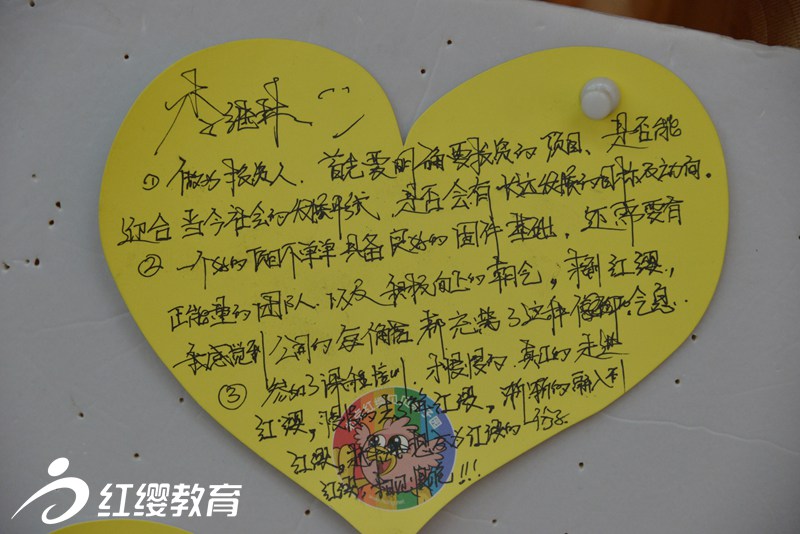 李继科
① 做为投资人.首先要明确要投资的项目、是否能
迎合当今社会的发展形式 是否会有长远发展的目标及动向。
② 一个好的园不单单具备良好的固件基础,还需要有
正能量的团队.以及积极向上的朝气,来到红缨,
亲感觉到公司的每个角落都充满了这种 气息.
③ 参加了课程培训.我慢慢的真正的走进
红缨,慢慢的去了解红缨,渐渐的融入到
红缨, 成为红缨的一份子
红缨, !!!
红缨教育